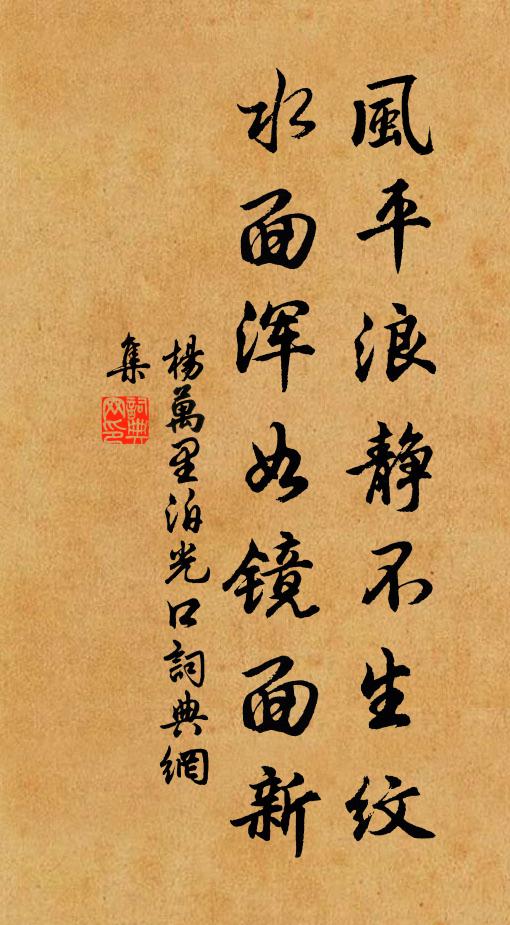 風平浪静不生紋
水面浑如镜面新
楊萬里泊光口詞典網
集
詞典網印